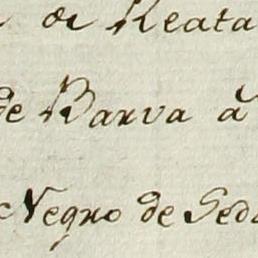 de Reata
de Barva à
Negro de Seda